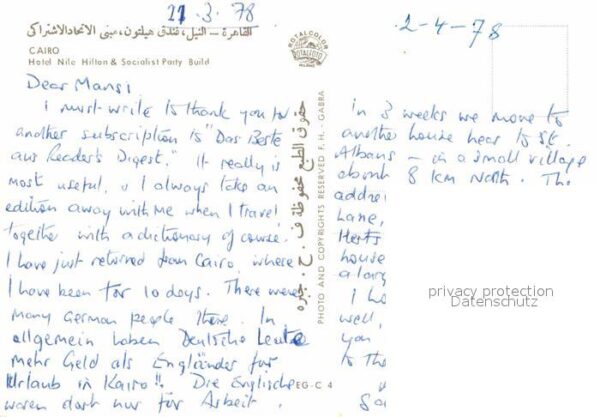 21.3.78
القاهرة – النيل، فندق هيلتون، مبنى الاتحاد الاشتراكى
CAIRO
Hotel Nile Hilton & Socialist Party Build
ROTALCOLOR
ROTALFOTO
MILANO
Dear Mansi
I must write to thank you for
another subscription to "Das Beste
aus Reader's Digest." It really is
most useful, & I always take an
edition away with me when I travel
together with a dictionary of course.
I have just returned from Cairo, where
I have been for 10 days. There were
many German people there. In
allgemein haben Deutsche Leute
mehr Geld als Engländer für
Urlaub in Kairo!! Die Englische
waren dort nur für Arbeit.
حقوق الطبع محفوظة ف. ح. جبره
PHOTO AND COPYRIGHTS RESERVED F. H. GABRA
EG-C 4
2-4-78
in 3 weeks we move to
another house near to St.
Albans – in a small village
about 8 km North. The
addre
Lane,
Herts
house
a larg
I ho
well,
you
to the
privacy protection
Datenschutz